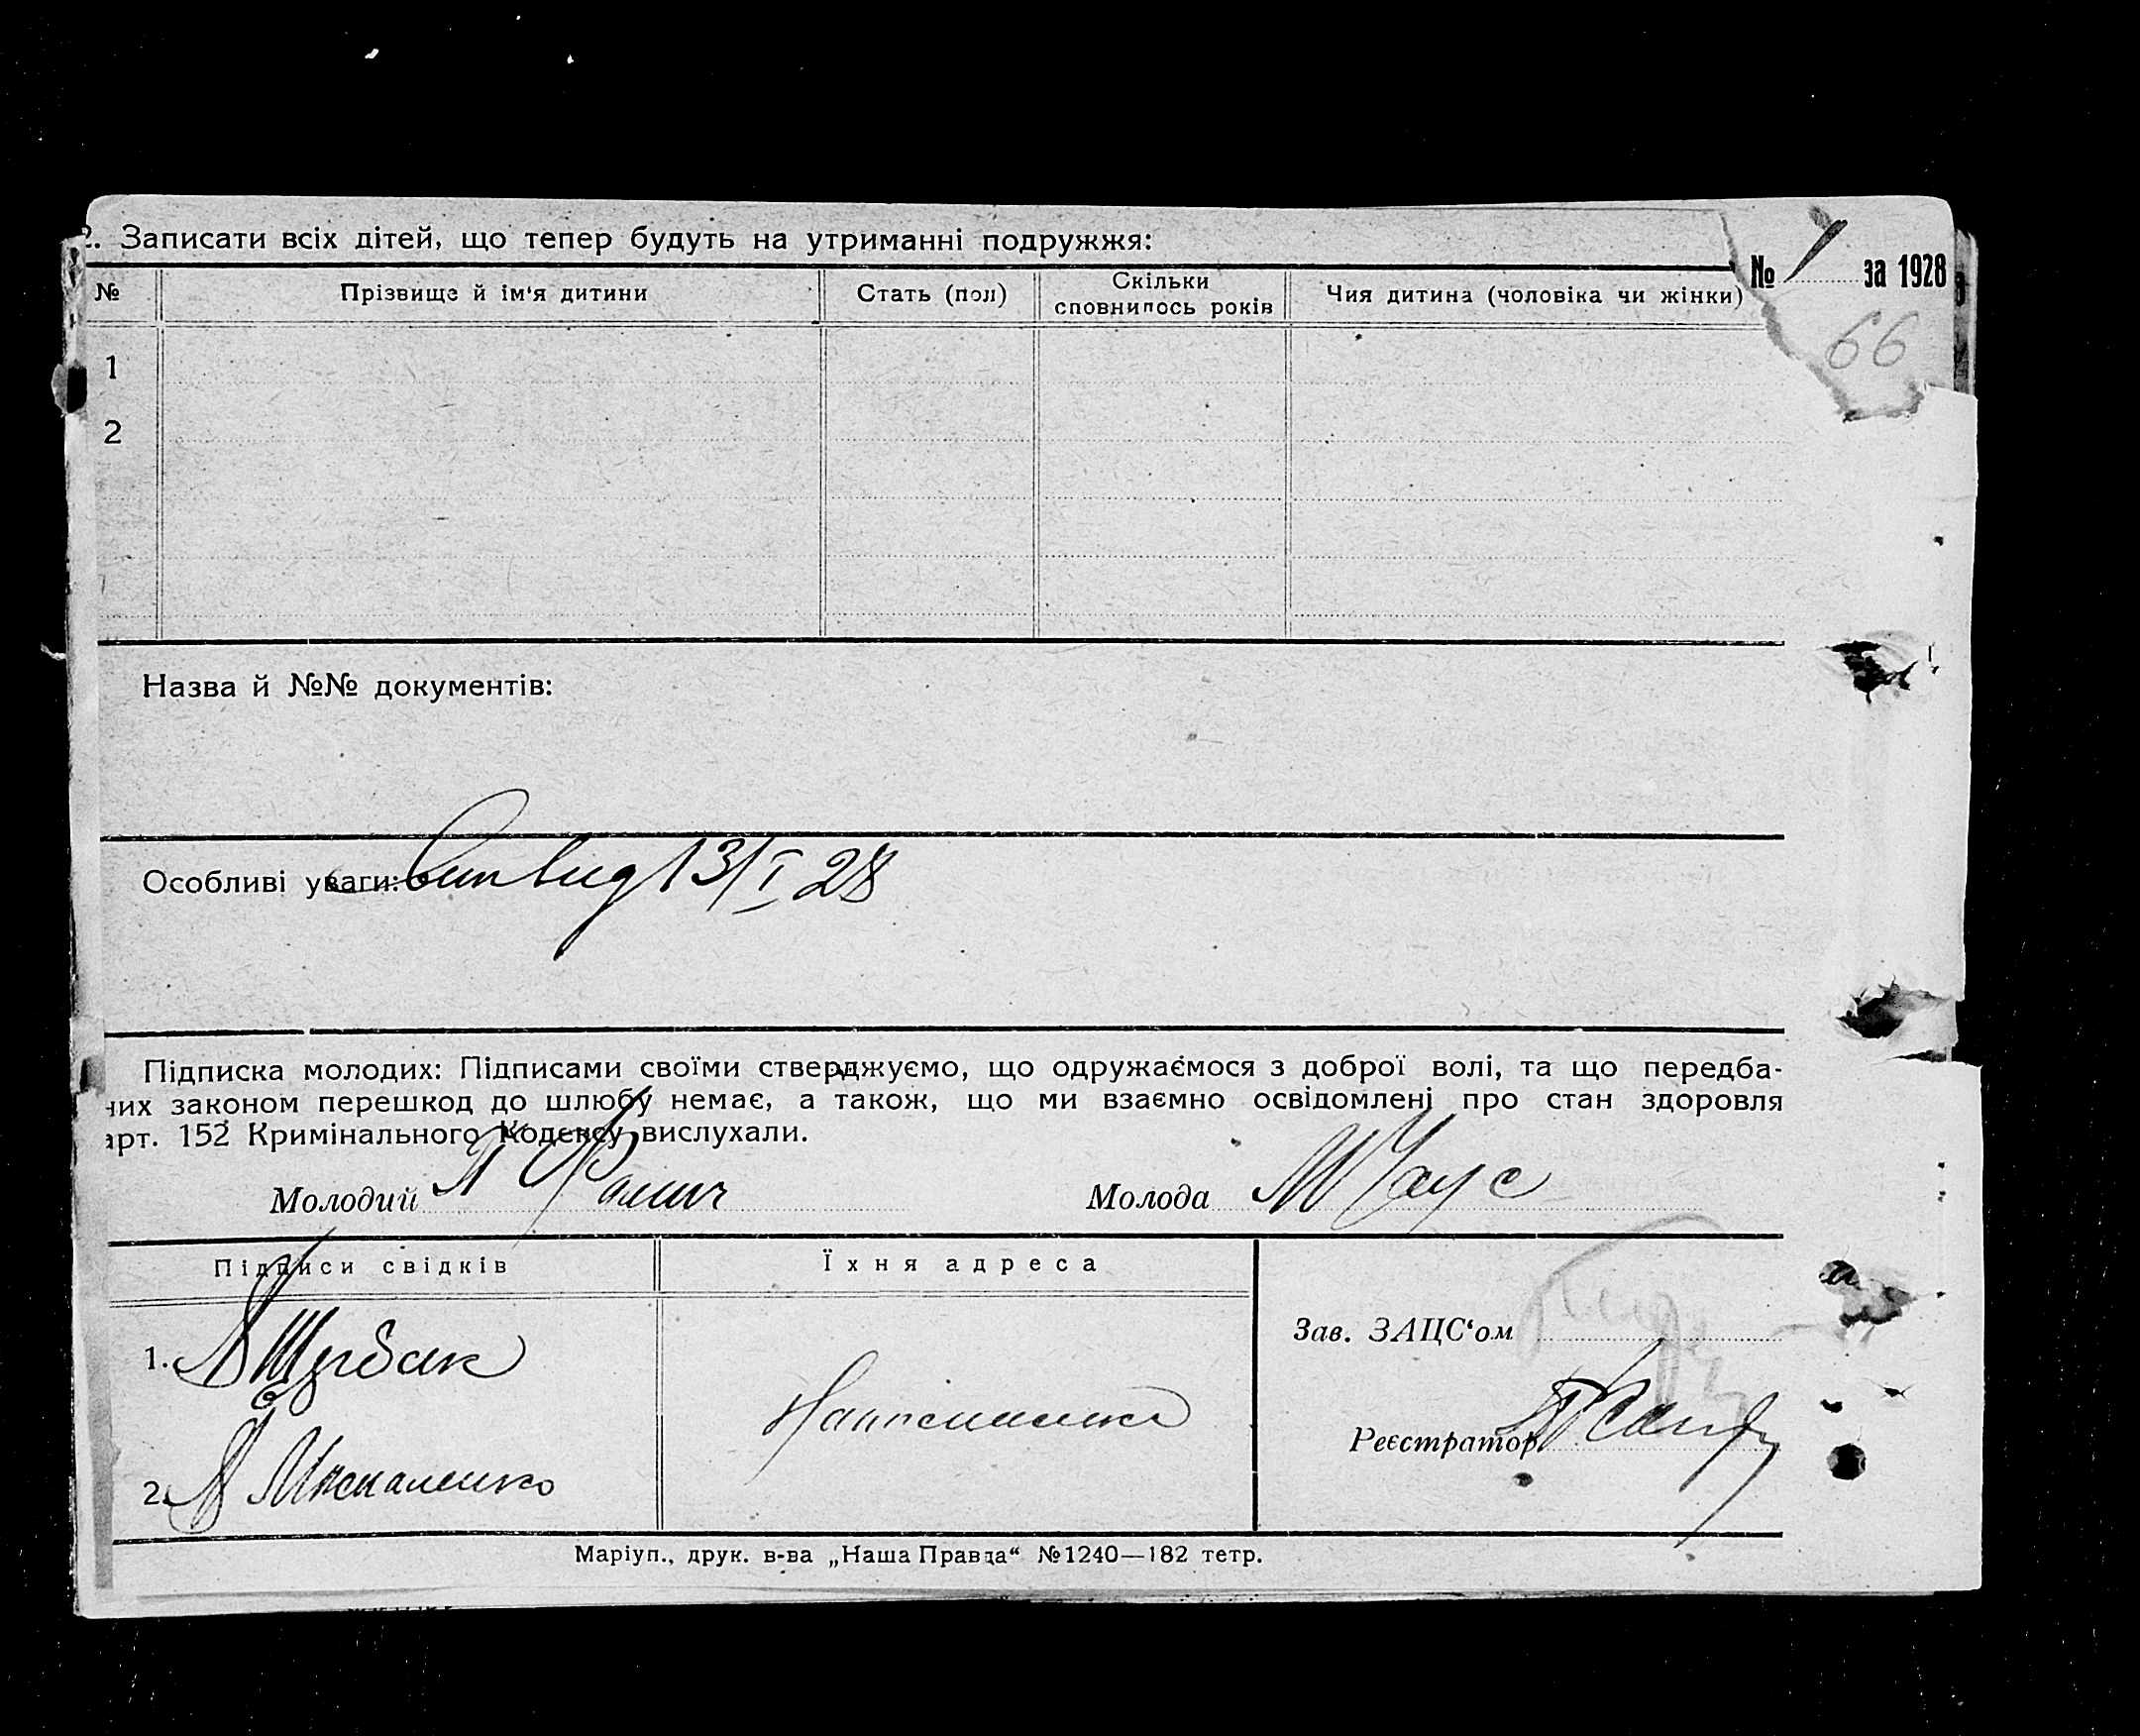 2. Записати всіх дітей, що тепер будуть на утриманні подружжя:
№ 1 за 1928
66
№ Прізвище й ім‘я дитини Стать (пол) Скільки сповнилось років Чия дитина (чоловіка чи жінки)
1
2
Назва й №№ документів:
Особливі уваги: 13/I 28
Підписка молодих: Підписами своїми стверджуємо, що одружаємося з доброї волі, та що передба-
них законом перешкод до шлюбу немає, а також, що ми взаємно освідомлені про стан здоровля
арт. 152 Кримінального Кодексу вислухали.
Молодий П Молода М Чаус
Підписи свідків Їхня адреса
Зав. ЗАЦС‘ом
1. Щербак
Реєстратор
2. Москаленко
Маріуп., друк. в-ва „Наша Правда“ №1240—182 тетр.